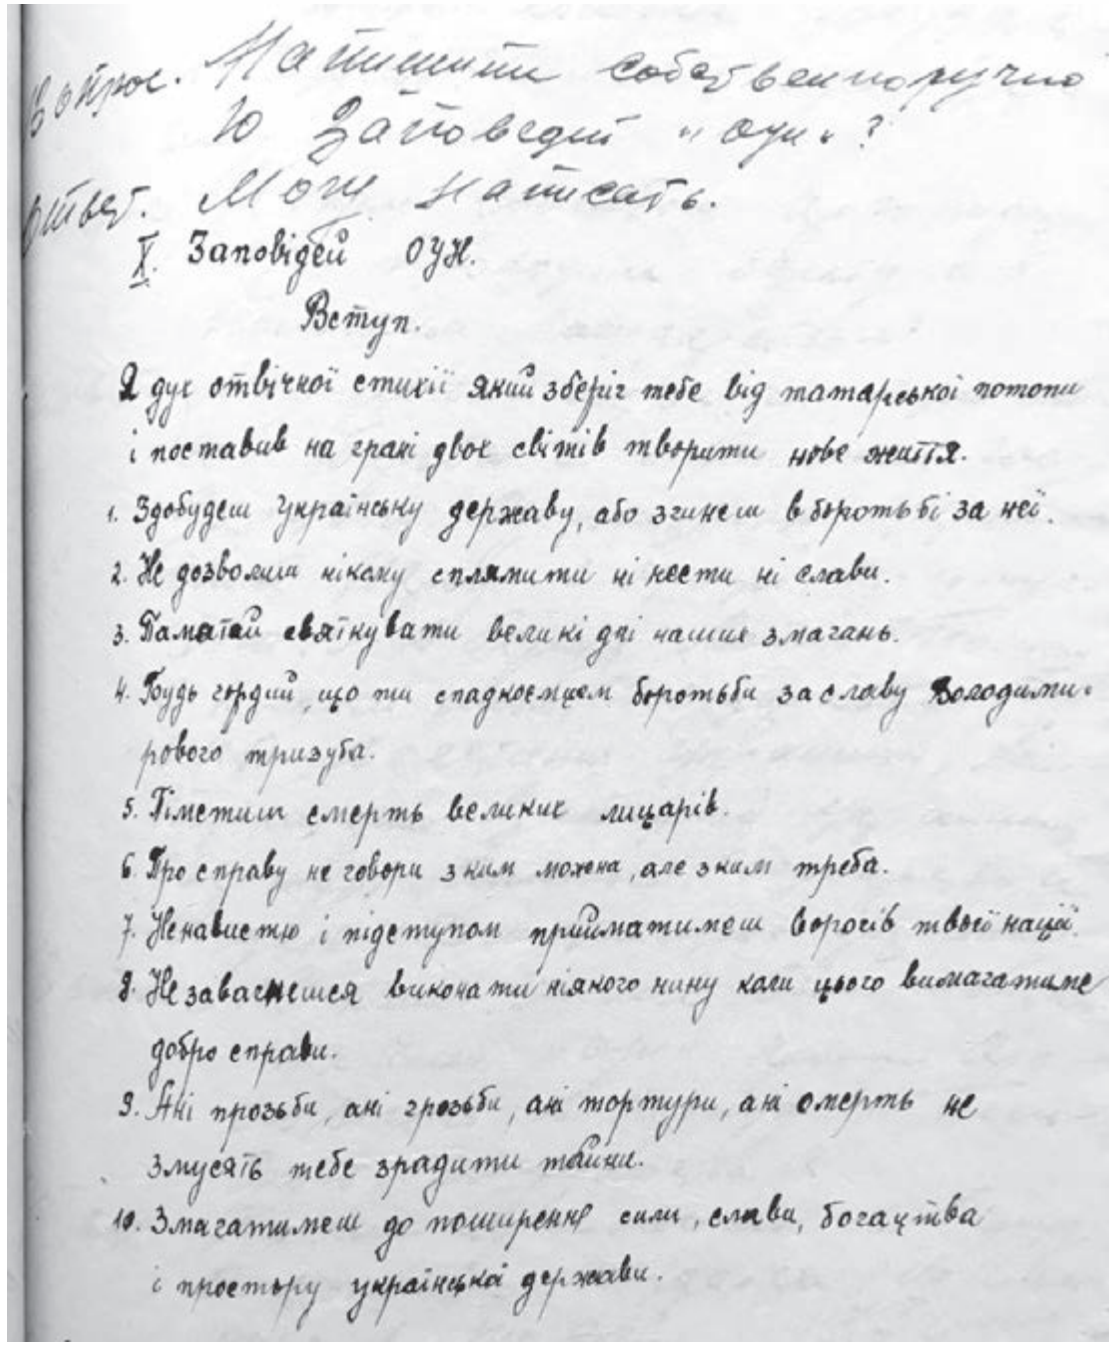 Вопрос. Напишити собственноручно
10 Заповедий "оун"?
Ответ.Можу написать.
X. Заповідей ОУН.
Вступ.
Я дух отвічної стихії який зберіг тебе від татарської потопи
і поставив на грані двох світів творити нове життя.
1. Здобудеш Українську державу, або згинеш в боротьбі за неї.
2. Не дозволиш нікому сплямити ні чести ні слави.
3. Памятай святкувати великі дні наших змагань.
4. Будь гордий, що ти спадкоємцем боротьби за славу Володими-
рового тризуба.
5. Пімстиш смерть великих лицарів.
6. Про справу не говори з ким можна, але з ким треба.
7. Ненавистю і підступом прийматимеш ворогів твоєї нації.
8. Не завагнешся виконати ніякого чину коли цього вимагатиме
добро справи.
9. Ані прозьби, ані грозьби, ані тортури, ані смерть не
змусять тебе зрадити тайни.
10. Змагатимеш до поширення сили, слави, богацтва
і простору української держави.